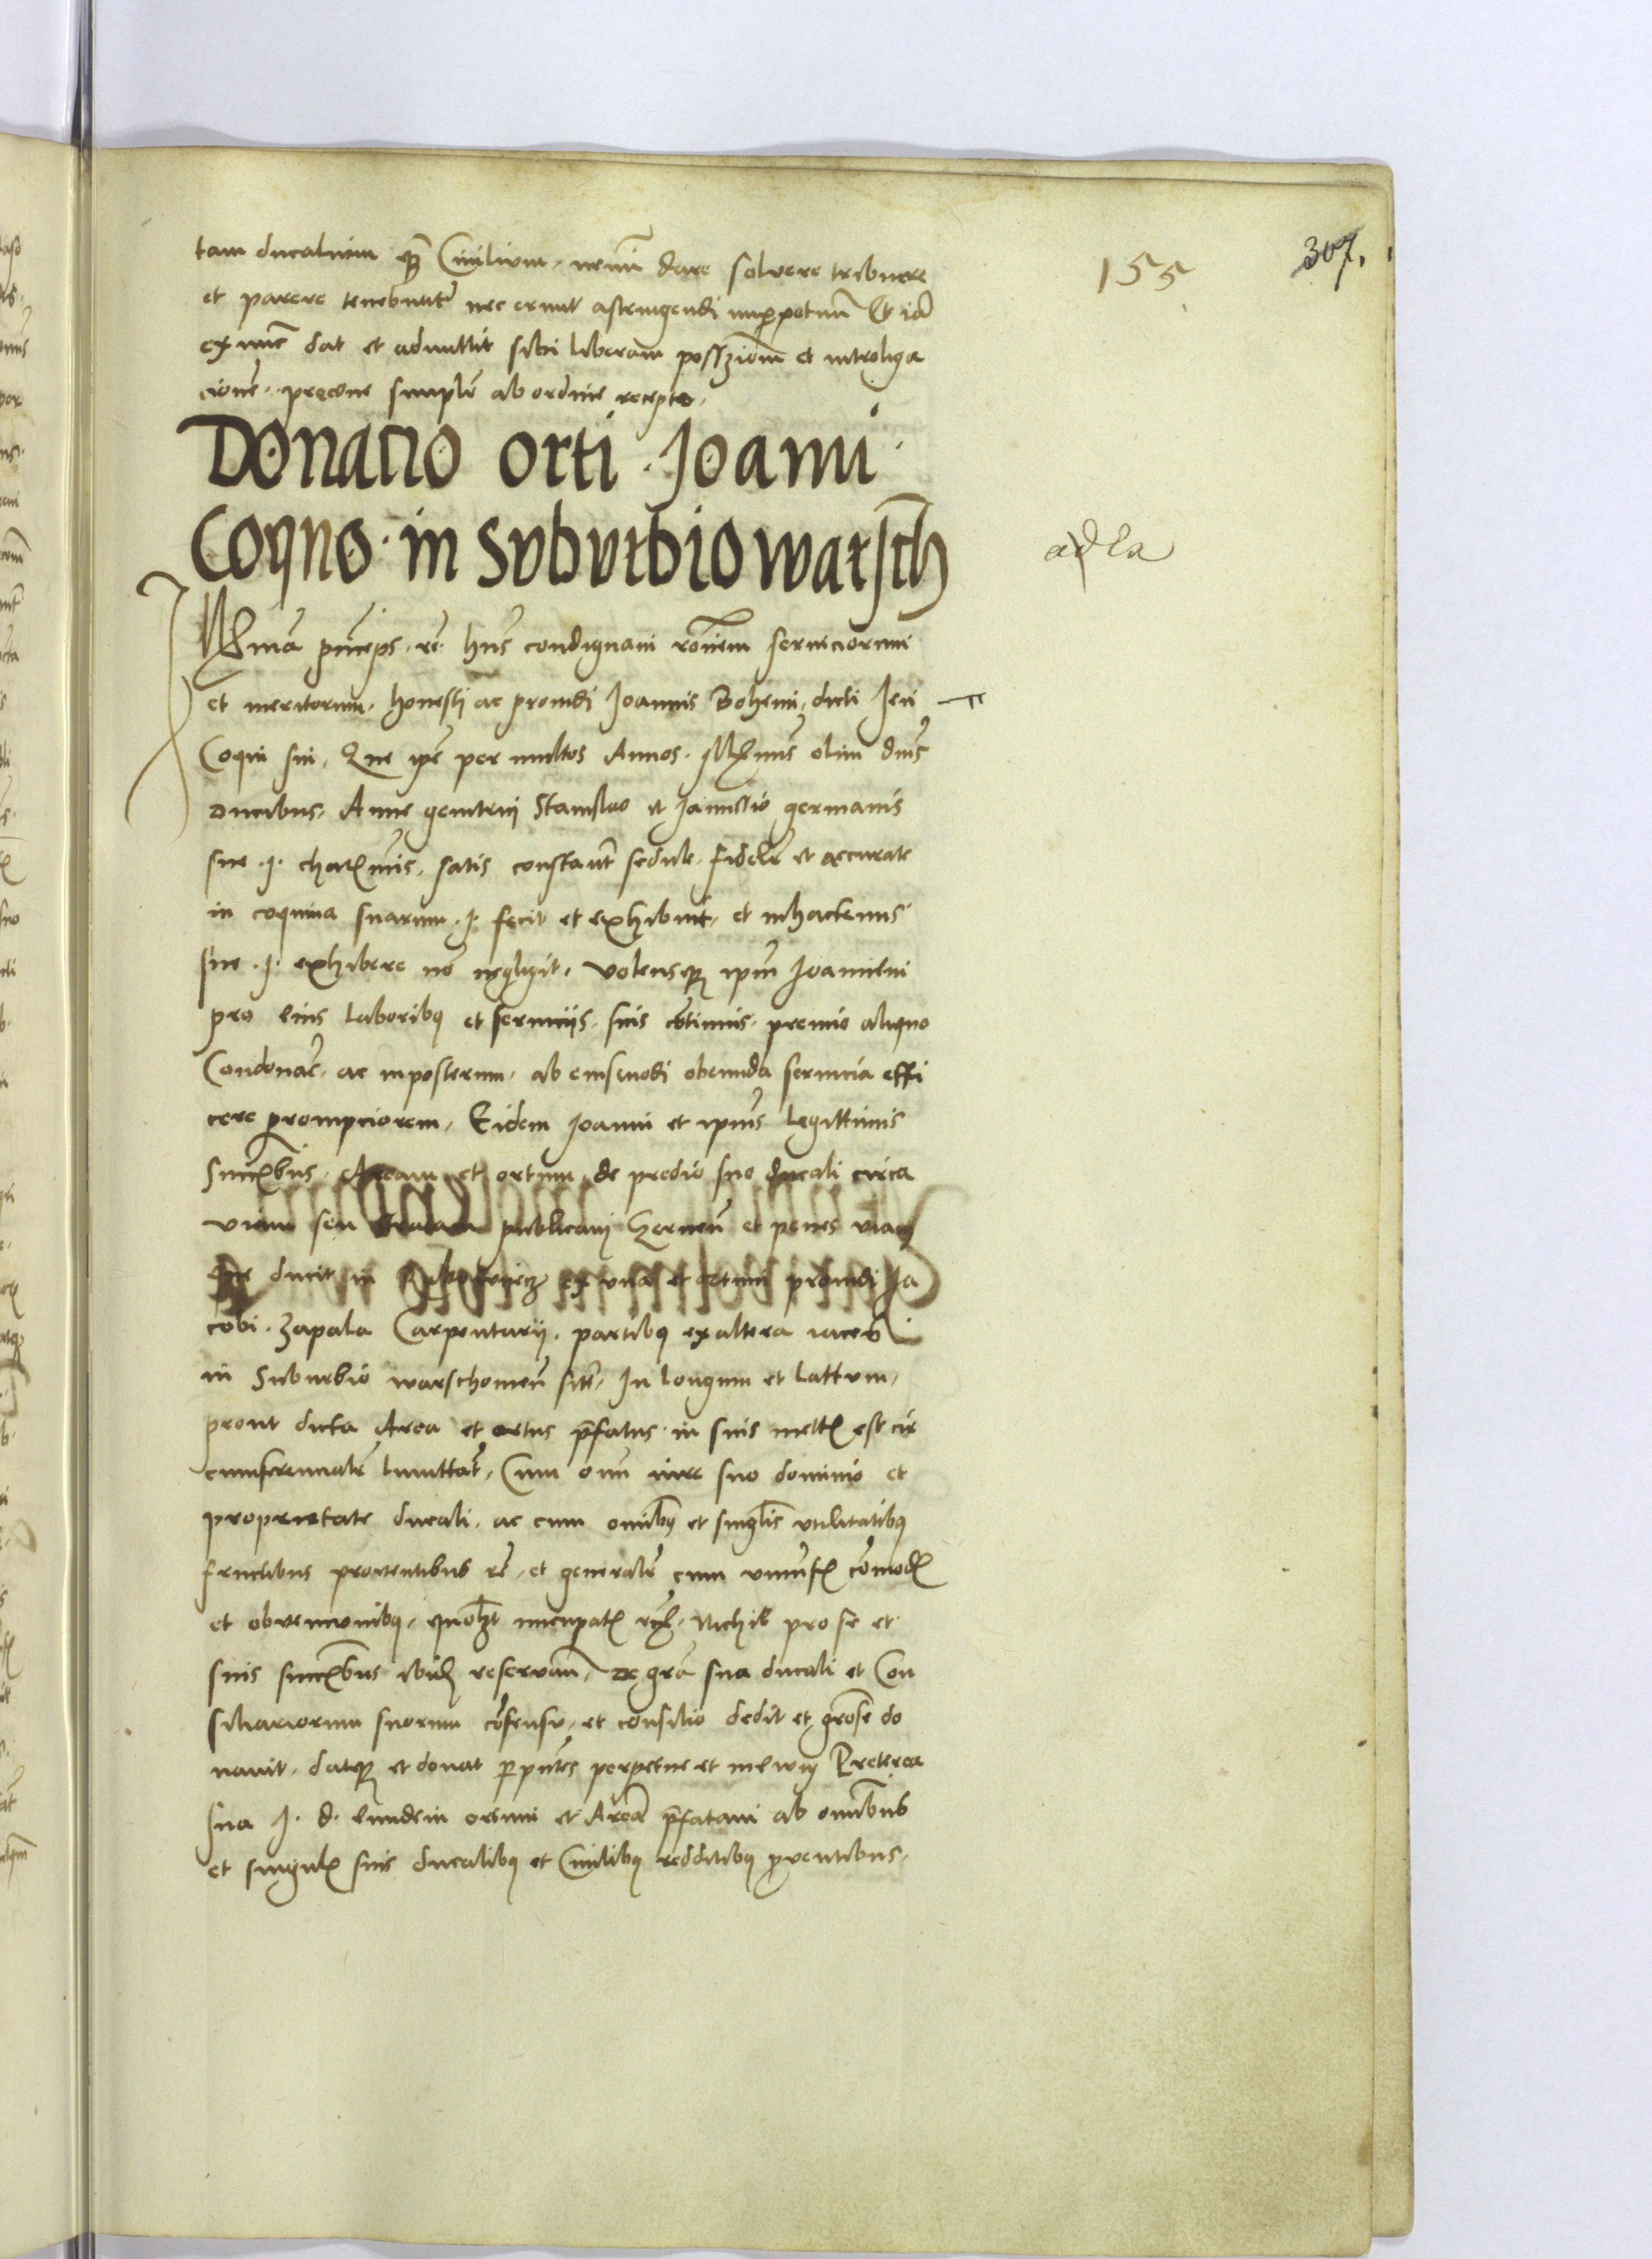 155
307.
tam ducalium q̃ Civilium, nemini dare solvere tribuere
et parere tenebuntur nec erunt astringendi inperpetuũ Et iã
ex nunc dat et admittit sibi liberam possessionem et introliga
cionẽ, precone simpl̃r ab ordine recepto.
Donacio orti . Joanni .
Coquo . in Suburbio warsch
adla
Illma princeps, rẽ hñs condignam rõnem serviciorum
et meritorum, honesti ac providi Joannis Bohemi, dicti Jeri
Coqui sui, Que ipse per multos Annos, Illmis olim dnis
Ducibus, Anne genitrici Stanislao et Janussio germanis
sue .I. charissimis, satis constant sedule, fidelr et accurate
in coquina suarum .I. fecit et exhibuit, et inhactenus
sue .I. exhibere nõ negligit, volensqȝ ipm Joannem
pro eius laboribus et serviciis, suis continuis, premio aliquo
Condonare, ac inposterum, ab eiusmodi obeunda servicia effi
cere prompciorem, Eidem Joanni et ipius legittimis
Succribus, Aream et ortum, de predio suo ducali circa
viam seu publicam Czernen et penes viam
que ducit in ex una et ortum providi Ja
cobi . Zapala Carpentarii, partibus ex altera iacen
in Suburbio warschowien sitt, In longum et lattum,
prout dicta Area et ortus p̃fatus in suis mettis est cir
cumferencialr limittat, Cum omni iure suo dominio et
proprietate ducali, ac cum omibus et singlis utilitatibus
fructibus proventibus rẽ, et generalr cum universis cõmodis
et obvencionibus, quolzt nuncupatis Nichil pro se et
suis succribus ibidem reservan, De gra sua ducali et Con
siliariorum suorum cõsensu, et consilio dedit et grose do
navit, datqȝ et donat p pntes perpetue et in ewm Preterea
sua I. d. eundem ortum et Areã p̃fatam ab omibus
et singulis suis ducalibus et Civilibus redditibus pventibus.